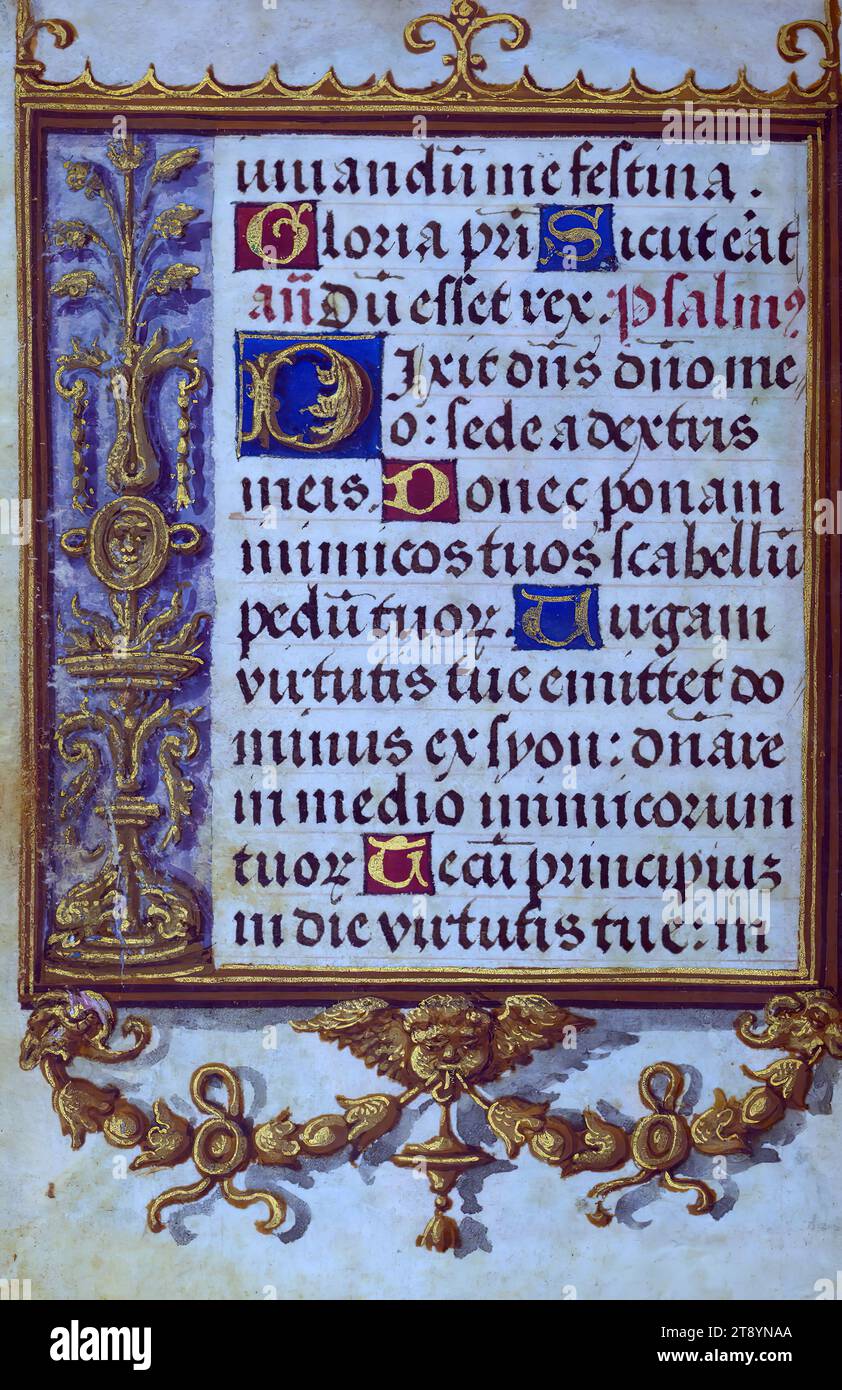 iuuandū me festina.
Gloria pr̄i Sicut eāt
an̄ Dū esset rex. Psalmꝰ
Dixit dn̄s dn̄o me
o: sede a dextris
meis. Donec ponam
inimicos tuos scabellū
pedū tuoꝝ. Uirgam
virtutis tue emittet do
minus ex syon: dn̄are
in medio inimicorum
tuoꝝ Tecū principiuꝫ
in die virtutis tue: in
alamy
Image ID: 2T8YNAA
www.alamy.com